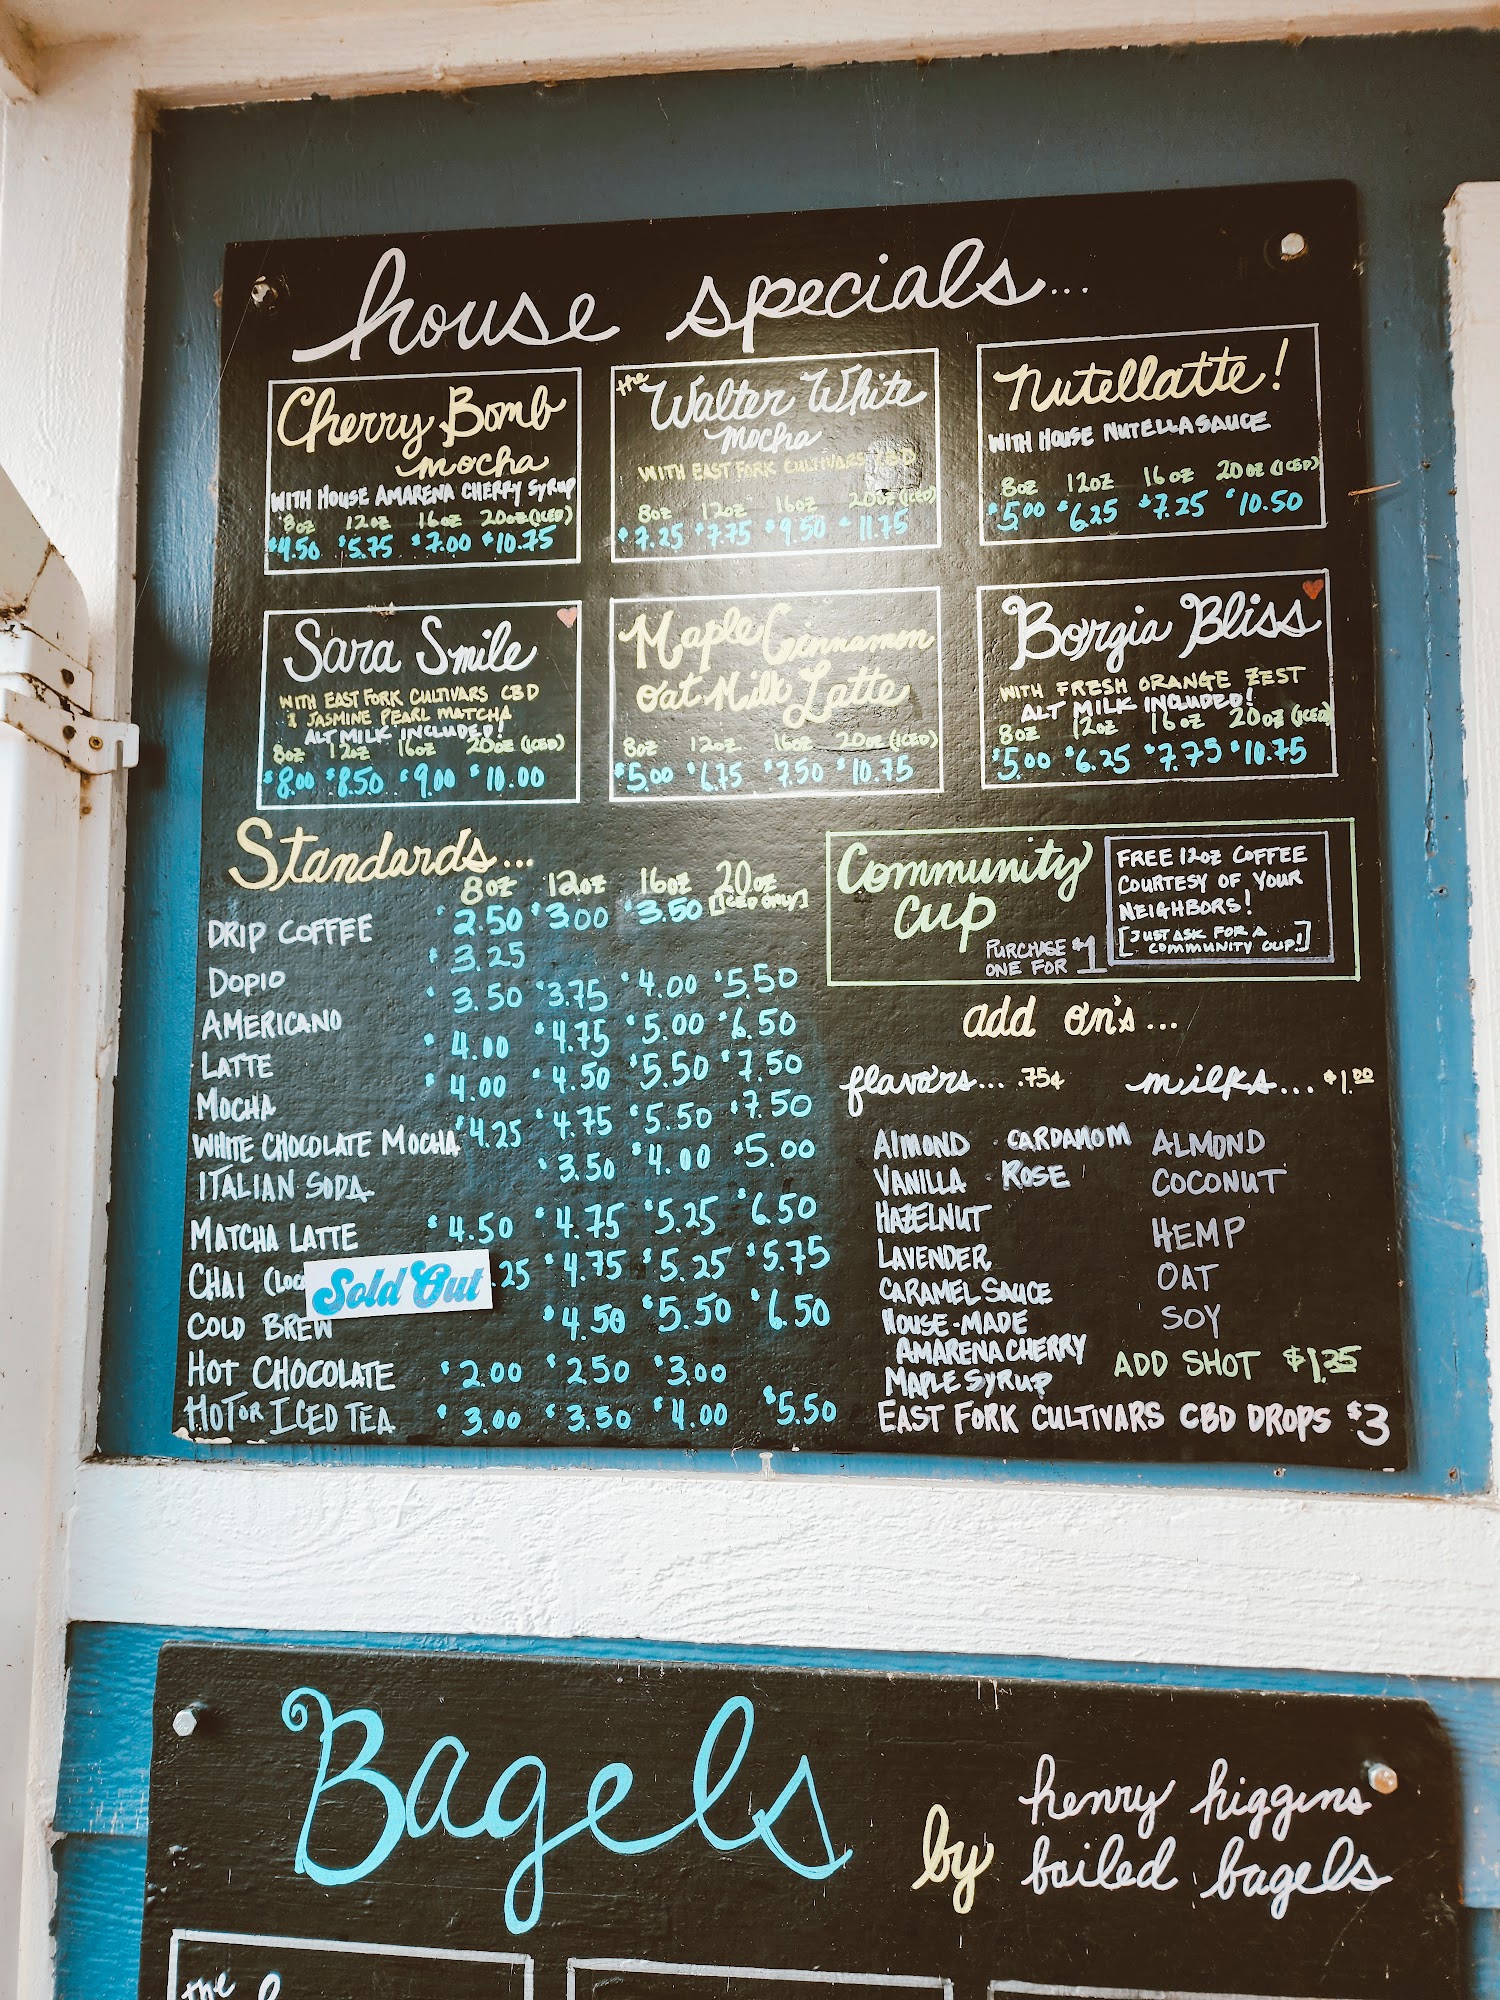 house specials...
Cherry Bomb
mocha
WITH HOUSE AMARENA CHERRY SYRUP
8oz 12oz 16oz 20oz (ICED)
$4.50 $5.75 $7.00 $10.75
the Walter White
mocha
WITH EAST FORK CULTIVARS CBD
8oz 12oz 16oz 20oz (ICED)
$7.25 $7.75 $9.50 $11.75
Nutellatte!
WITH HOUSE NUTELLA SAUCE
8oz 12oz 16oz 20oz (ICED)
$5.00 $6.25 $7.25 $10.50
Sara Smile
WITH EAST FORK CULTIVARS CBD
& JASMINE PEARL MATCHA
ALT MILK INCLUDED!
8oz 12oz 16oz 20oz (ICED)
$8.00 $8.50 $9.00 $10.00
Maple Cinnamon
Oat Milk Latte
8oz 12oz 16oz 20oz (ICED)
$5.00 $6.75 $7.50 $10.75
Borgia Bliss
WITH FRESH ORANGE ZEST
ALT MILK INCLUDED!
8oz 12oz 16oz 20oz (ICED)
$5.00 $6.25 $7.75 $10.75
Standards...
8oz 12oz 16oz 20oz
[ICED ONLY]
DRIP COFFEE $2.50 $3.00 $3.50
DOPIO $3.25
AMERICANO $3.50 $3.75 $4.00 $5.50
LATTE $4.00 $4.75 $5.00 $6.50
MOCHA $4.00 $4.50 $5.50 $7.50
WHITE CHOCOLATE MOCHA $4.25 $4.75 $5.50 $7.50
ITALIAN SODA $3.50 $4.00 $5.00
MATCHA LATTE $4.50 $4.75 $5.25 $6.50
CHAI Sold Out .25 $4.75 $5.25 $5.75
COLD BREW $4.50 $5.50 $6.50
HOT CHOCOLATE $2.00 $2.50 $3.00
HOT OR ICED TEA $3.00 $3.50 $4.00 $5.50
Community
Cup
PURCHASE
ONE FOR $1
FREE 12oz COFFEE
COURTESY OF YOUR
NEIGHBORS!
[JUST ASK FOR A
COMMUNITY CUP!]
add on's...
flavors... .75¢
ALMOND · CARDAMOM
VANILLA · ROSE
HAZELNUT
LAVENDER
CARAMEL SAUCE
HOUSE-MADE
AMARENA CHERRY
MAPLE SYRUP
milks... $1.00
ALMOND
COCONUT
HEMP
OAT
SOY
ADD SHOT $1.25
EAST FORK CULTIVARS CBD DROPS $3
Bagels
by henry higgins
boiled bagels
the